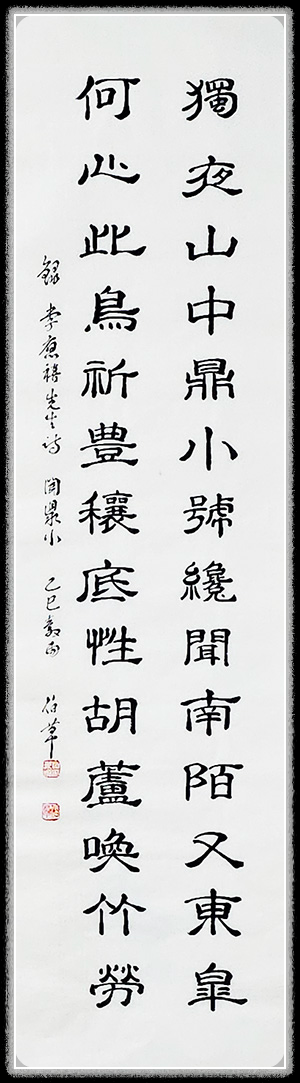 獨夜山中鼎小號纔聞南陌又東皐
何心此鳥祈豊穰底性胡蘆喚竹勞
錄 李應禧先生诗 闻鼎小 乙巳